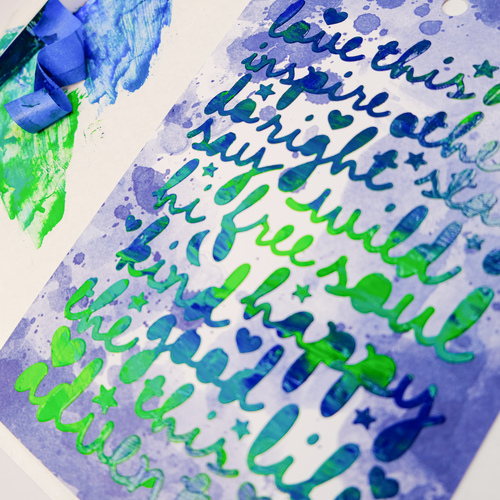 love this
inspire
do right
say wild
hi free soul
kind happy
the good
this